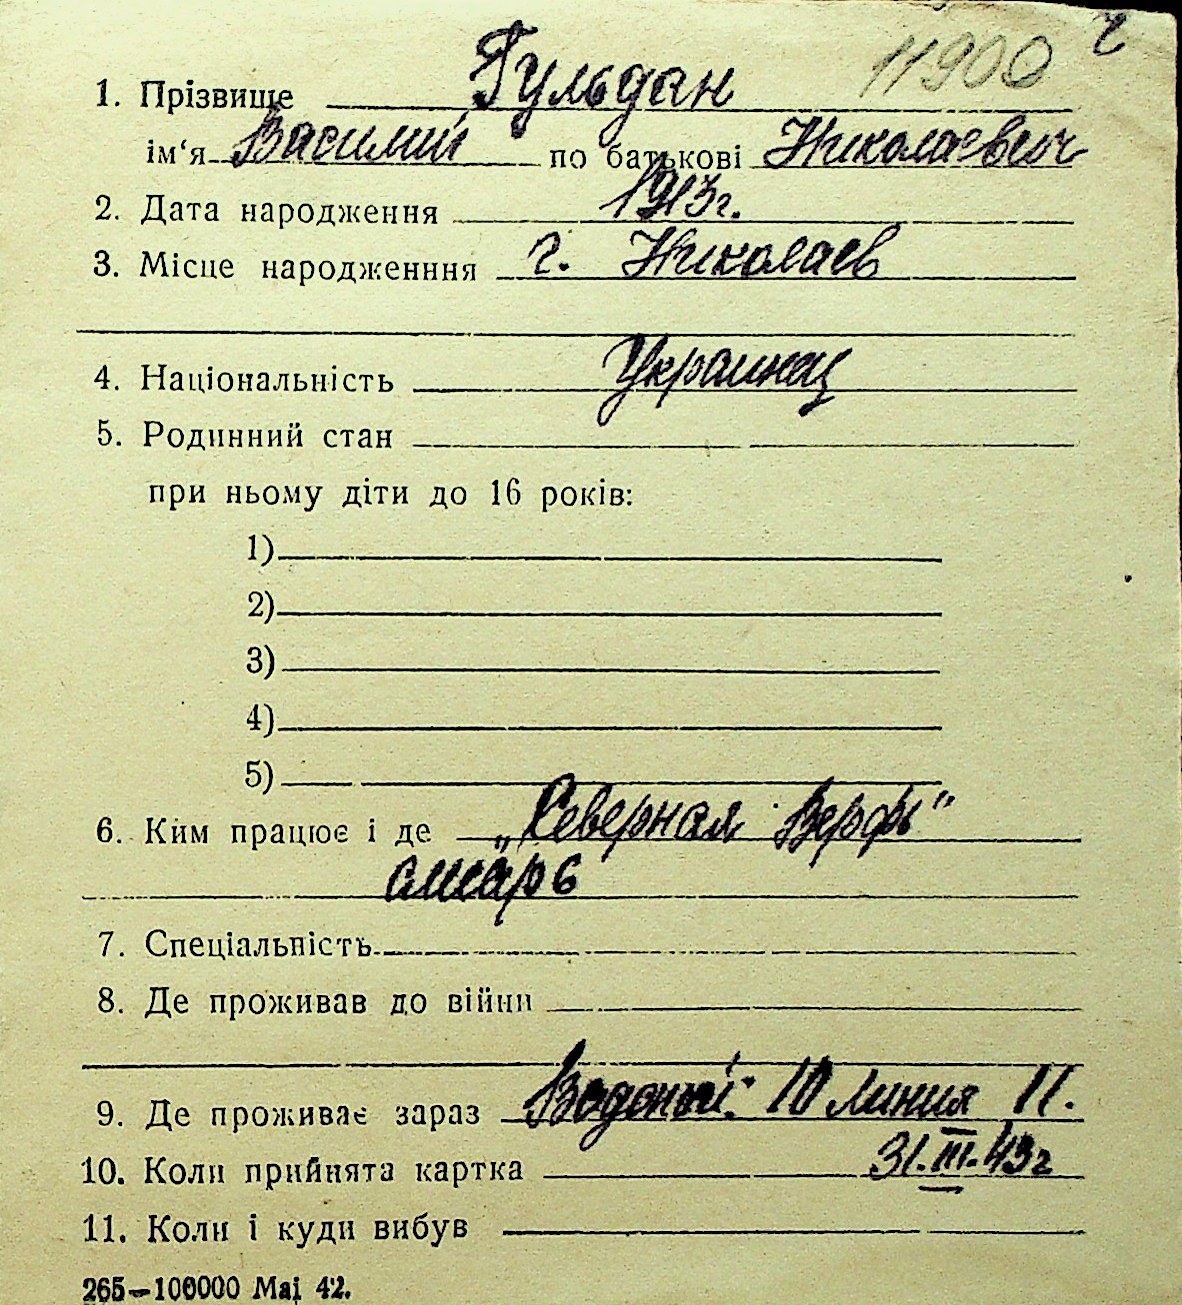 11900 г
1. Прізвище Гульдан
ім‘я Василий по батькові Николаевич
2. Дата народження 1913г.
3. Місце народженння г. Николаев
4. Національність Украинец
5. Родинний стан
при ньому діти до 16 років:
1)
2)
3)
4)
5)
6. Ким працює і де „Северная Верфь"
слюсарь
7. Спеціальність
8. Де проживав до війни
9. Де проживає зараз 10 линия 11.
10. Коли прийнята картка 31.III.43г
11. Коли і куди вибув
265—100000 Maj 42.